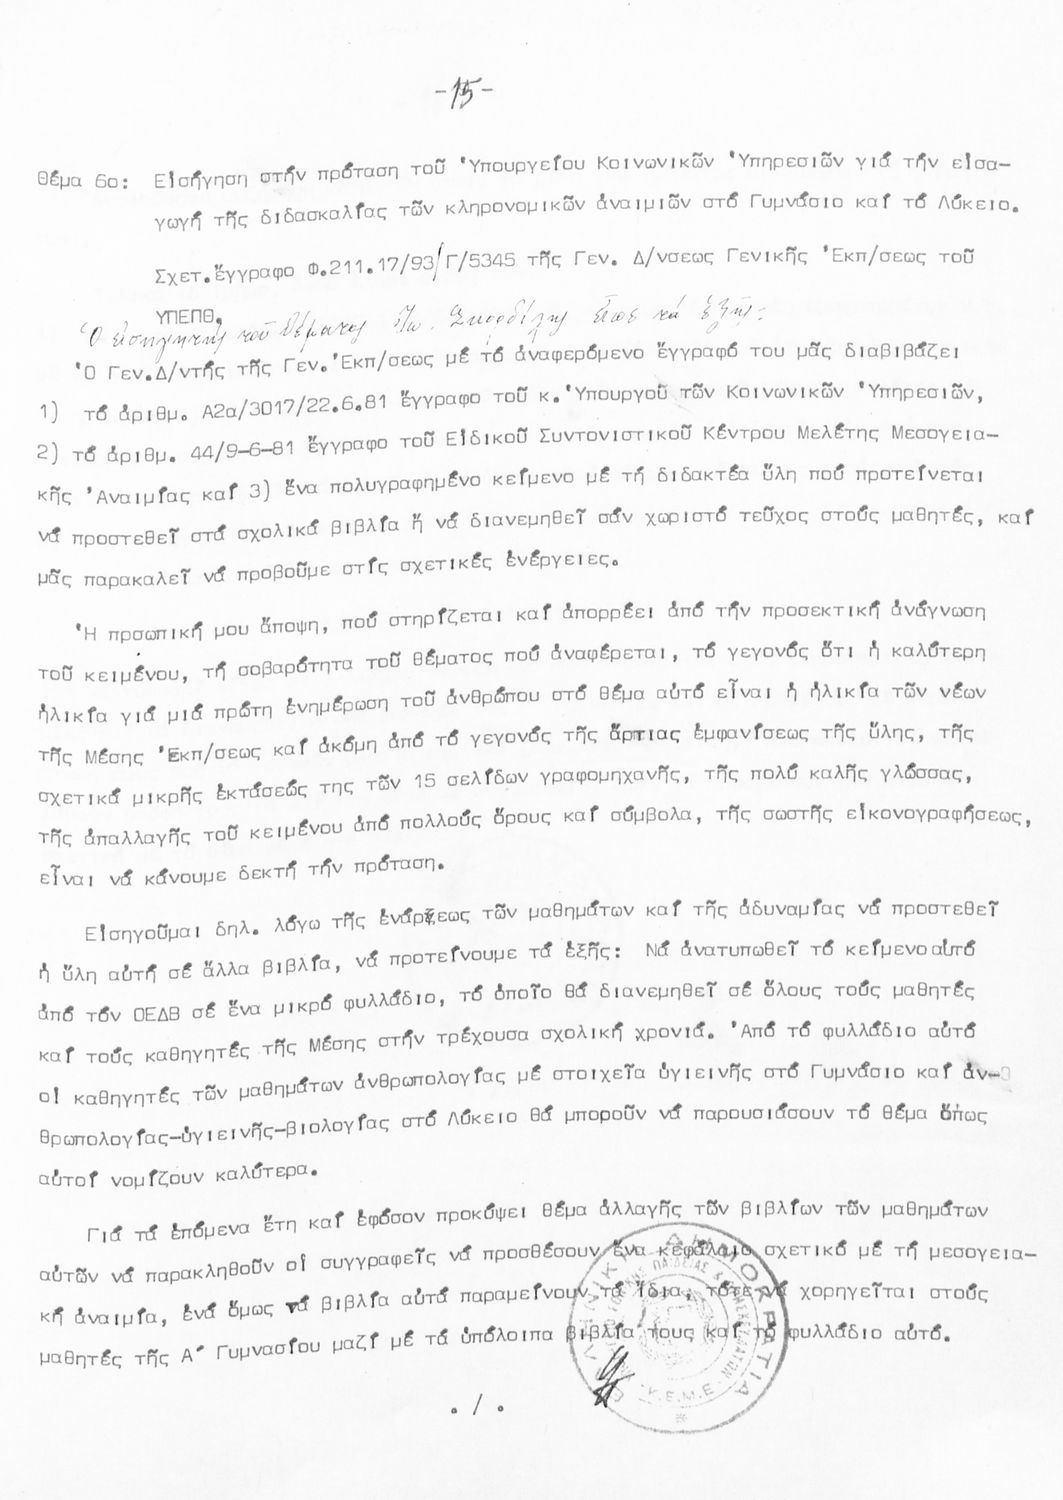 -15-
θέμα 6ο: Εἰσήγηση στήν πρόταση τοῦ Ὑπουργείου Κοινωνικῶν Ὑπηρεσιῶν γιά τήν εἰσα-
γωγή τῆς διδασκαλίας τῶν κληρονομικῶν ἀναιμιῶν στό Γυμνάσιο καί τό Λύκειο.
Σχετ.ἔγγραφο Φ.211.17/93/Γ/5345 τῆς Γεν. Δ/νσεως Γενικῆς Ἐκπ/σεως τοῦ
ΥΠΕΠΘ.
Ὁ εἰσηγητής τοῦ θέματος Ἰω. Σκορδίλης εἶπε τά ἑξῆς:
Ὁ Γεν.Δ/ντής τῆς Γεν. Ἐκπ/σεως μέ τό ἀναφερόμενο ἔγγραφό του μᾶς διαβιβάζει
1) τό ἀριθμ. Α2α/3017/22.6.81 ἔγγραφο τοῦ κ. Ὑπουργοῦ τῶν Κοινωνικῶν Ὑπηρεσιῶν,
2) τό ἀριθμ. 44/9-6-81 ἔγγραφο τοῦ Εἰδικοῦ Συντονιστικοῦ Κέντρου Μελέτης Μεσογεια-
κῆς Ἀναιμίας καί 3) ἕνα πολυγραφημένο κείμενο μέ τή διδακτέα ὕλη πού προτείνεται
νά προστεθεῖ στά σχολικά βιβλία ἤ νά διανεμηθεῖ σάν χωριστό τεῦχος στούς μαθητές, καί
μᾶς παρακαλεῖ νά προβοῦμε στίς σχετικές ἐνέργειες.
Ἡ πρσωπική μου ἄποψη, πού στηρίζεται καί ἀπορρέει ἀπό τήν προσεκτική ἀνάγνωση
τοῦ κειμένου, τή σοβαρότητα τοῦ θέματος πού ἀναφέρεται, τό γεγονός ὅτι ἡ καλύτερη
ἡλικία γιά μιά πρώτη ἐνημέρωση τοῦ ἀνθρώπου στό θέμα αὐτό εἶναι ἡ ἡλικία τῶν νέων
τῆς Μέσης Ἐκπ/σεως καί ἀκόμη ἀπό τό γεγονός τῆς ἄρτιας ἐμφανίσεως τῆς ὕλης, τῆς
σχετικά μικρῆς ἐκτάσεώς της τῶν 15 σελίδων γραφομηχανῆς, τῆς πολύ καλῆς γλώσσας,
τῆς ἀπαλλαγῆς τοῦ κειμένου ἀπό πολλούς ὅρους καί σύμβολα, τῆς σωστῆς εἰκονογραφήσεως,
εἶναι νά κάνουμε δεκτή τήν πρόταση.
Εἰσηγοῦμαι δηλ. λόγω τῆς ἐνάρξεως τῶν μαθημάτων καί τῆς ἀδυναμίας νά προστεθεῖ
ἡ ὕλη αὐτή σέ ἄλλα βιβλία, νά προτείνουμε τά ἑξῆς: Νά ἀνατυπωθεῖ τό κείμενο αὐτό
ἀπό τόν ΟΕΔΒ σέ ἕνα μικρό φυλλάδιο, τό ὁποῖο θά διανεμηθεῖ σέ ὅλους τούς μαθητές
καί τούς καθηγητές τῆς Μέσης στήν τρέχουσα σχολική χρονιά. Ἀπό τό φυλλάδιο αὐτό
οἱ καθηγητές τῶν μαθημάτων ἀνθρωπολογίας μέ στοιχεῖα ὑγιεινῆς στό Γυμνάσιο καί ἀν-
θρωπολογίας-ὑγιεινῆς-βιολογίας στό Λύκειο θά μποροῦν νά παρουσιάσουν τό θέμα ὅπως
αὐτοί νομίζουν καλύτερα.
Γιά τά ἑπόμενα ἔτη καί ἐφόσον προκύψει θέμα ἀλλαγῆς τῶν βιβλίων τῶν μαθημάτων
αὐτῶν νά παρακληθοῦν οἱ συγγραφεῖς νά προσθέσουν ἕνα κεφάλαιο σχετικό μέ τή μεσογεια-
κή ἀναιμία, ἐνά ὅμως τά βιβλία αὐτά παραμείνουν τά ἴδια, τότε νά χορηγεῖται στούς
μαθητές τῆς Α΄ Γυμνασίου μαζί μέ τά ὑπόλοιπα βιβλία τους καί τό φυλλάδιο αὐτό.
./.
ΕΛΛΗΝΙΚΗ ΔΗΜΟΚΡΑΤΙΑ
Κ.Ε.Μ.Ε.